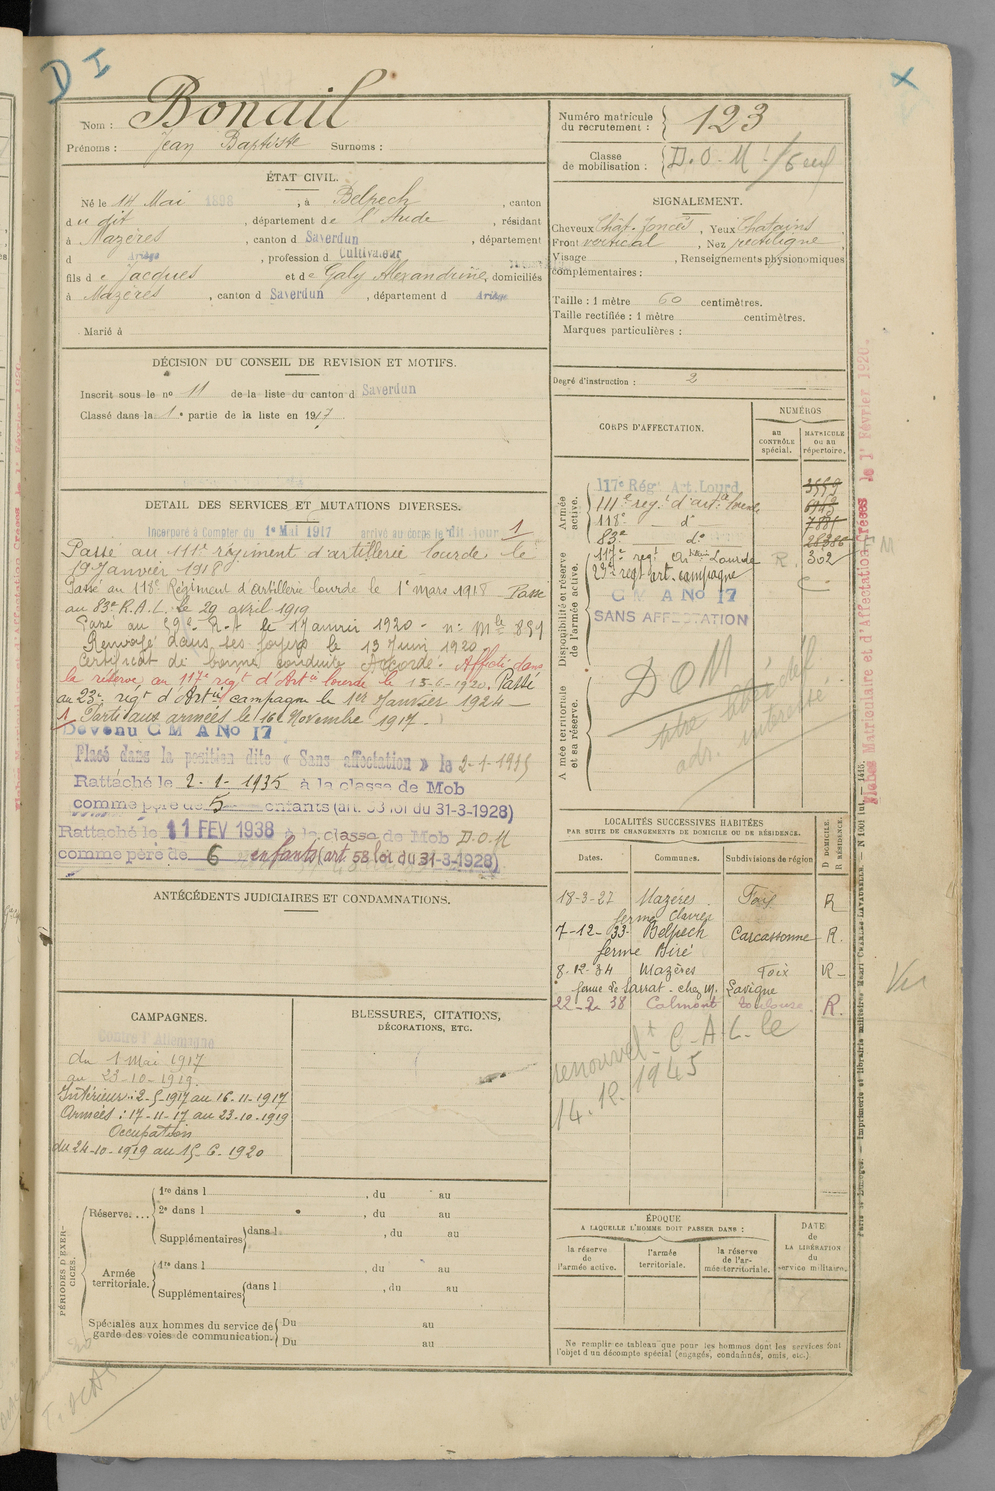 D I
X
Nom : Bonail
Prénoms : Jean Baptiste Surnoms :
ÉTAT CIVIL.
Né le 14 Mai 1898, à Belpech, canton
du dit, département de l'Aude, résidant
à Mazères, canton d Saverdun, département
d Ariège, profession d Cultivateur
fils de Jacques et de Galy Alexandrine, domiciliés
à Mazères, canton d Saverdun, département d Ariège
Marié à
DÉCISION DU CONSEIL DE REVISION ET MOTIFS.
Inscrit sous le no 11 de la liste du canton d Saverdun
Classé dans la 1e partie de la liste en 1917
DETAIL DES SERVICES ET MUTATIONS DIVERSES.
Incorporé à Compter du 1er Mai 1917 arrivé au corps le dit jour 1
Passé au 111e régiment d'artillerie lourde le
19 Janvier 1918
Passé au 118e Régiment d'Artillerie lourde le 1er mars 1918 Passé
au 83e R.A.L. le 29 avril 1919
le 1 Janvier 1920 - n° Mle 851
Renvoyé dans ses foyers le 13 Juin 1920
Certificat de bonne conduite Accordé. Affecté dans
la réserve au 117e régt d'Artie lourde le 15-6-1920. Passé
au 23e régt d'Artie campagne le 1er Janvier 1924
1. Parti aux armées le 16 Novembre 1917.
Devenu C M A No 17
Plasé dans la position dite « Sans affectation » le 2-1-1935
Rattaché le 2-1-1935 à la classe de Mob
comme père de 5 enfants (art. 58 loi du 31-3-1928)
Rattaché le 11 FEV 1938 à la classe de Mob D.O.M
comme père de 6 enfants (art 58 loi du 31-3-1928)
ANTÉCÉDENTS JUDICIAIRES ET CONDAMNATIONS.
CAMPAGNES.
Contre l'Allemagne
du 1 Mai 1917
au 23-10-1919.
Intérieur : 2-5-1917 au 16-11-1917
Armées : 17-11-17 au 23-10-1919
Occupation
du 24-10-1919 au 15-6-1920
BLESSURES, CITATIONS,
DÉCORATIONS, ETC.
PÉRIODES D'EXERCICES.
Réserve....
1re dans l , du au
2e dans l , du au
Supplémentaires dans l , du au
Armée territoriale.
1re dans l , du au
Supplémentaires dans l , du au
Spéciales aux hommes du service de garde des voies de communication.
Du au
Du au
Numéro matricule du recrutement : 123
Classe de mobilisation : D.O.M. / 6 enf
SIGNALEMENT.
Cheveux Chât. foncés, Yeux Chatains
Front vertical, Nez rectiligne
Visage , Renseignements physionomiques
complémentaires :
Taille : 1 mètre 60 centimètres.
Taille rectifiée : 1 mètre centimètres.
Marques particulières :
Degré d'instruction : 2
CORPS D'AFFECTATION.
NUMÉROS
au CONTRÔLE spécial.
MATRICULE ou au répertoire.
Armée active.
117e Rég Art. Lourd. 3559
111e régt d'artie lourde
118e d°
83e d° 28386
Disponibilité et réserve de l'armée active.
117e régt Artillerie Lourde R. 302
23e régt art. campagne
C M A No 17
SANS AFFECTATION
Armée territoriale et sa réserve.
DOM
LOCALITÉS SUCCESSIVES HABITÉES
PAR SUITE DE CHANGEMENTS DE DOMICILE OU DE RÉSIDENCE.
Dates. Communes. Subdivisions de région
D DOMICILE.
R RÉSIDENCE.
18-3-27 Mazères. Foix R
ferme Clavies
7-12-33 Belpech Carcassonne R.
ferme Biré
8-12-34 Mazères Foix R
ferme de Sarrat - chez M. Lavigne
22-2-38 Calmont Toulouse. R.
renouvelt C.A.L. le
14.12.1945
ÉPOQUE
A LAQUELLE L'HOMME DOIT PASSER DANS :
la réserve de l'armée active.
l'armée territoriale.
la réserve de l'armée territoriale.
DATE
de
LA LIBÉRATION
du
service militaire.
Ne remplir ce tableau que pour les hommes dont les services font
l'objet d'un décompte spécial (engagés, condamnés, omis, etc.).
Fiches Matriculaire et d'Affectation Créées le 1er Février 1920.
Paris et Limoges. — Imprimerie et librairie militaires Henri CHARLES-LAVAUZELLE.
Vu